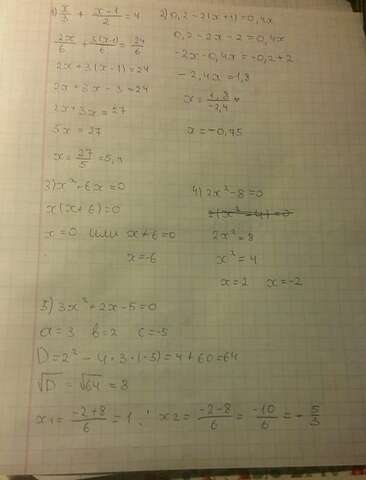 1) x/3 + (x-1)/2 = 4
2x/6 + 3(x-1)/6 = 24/6
2x+3(x-1)=24
2x+3x-3=24
2x+3x=27
5x=27
x=27/5=5,4
2) 0,2-2(x+1)=0,4x
0,2-2x-2=0,4x
-2x-0,4x=-0,2+2
-2,4x=1,8
x=1,8/-2,4
x=-0,75
3) x²+6x=0
x(x+6)=0
x=0 или x+6=0
x=-6
4) 2x²-8=0
2(x²-4)=0
2x²=8
x²=4
x=2 x=-2
5) 3x²+2x-5=0
a=3 b=2 c=-5
D=2²-4·3·(-5)=4+60=64
√D=√64=8
x₁=(-2+8)/6=1; x₂=(-2-8)/6=-10/6=-5/3